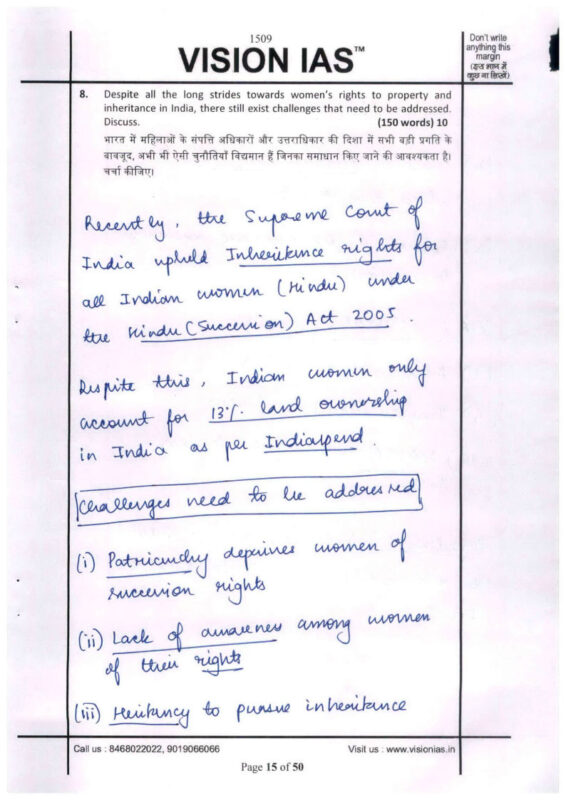 1509
VISION IAS™
Don't write
anything this
margin
(इस भाग में
कुछ ना लिखें)
8. Despite all the long strides towards women's rights to property and
inheritance in India, there still exist challenges that need to be addressed.
Discuss. (150 words) 10
भारत में महिलाओं के संपत्ति अधिकारों और उत्तराधिकार की दिशा में सभी बड़ी प्रगति के
बावजूद, अभी भी ऐसी चुनौतियाँ विद्यमान हैं जिनका समाधान किए जाने की आवश्यकता है।
चर्चा कीजिए।
Recently, the Supreme Court of
India upheld Inheritance rights for
all Indian women (Hindu) under
the Hindu (Succession) Act 2005.
Despite this, Indian women only
account for 13% land ownership
in India as per Indiaspend.
Challenges need to be addressed
(i) Patriarchy deprives women of
succession rights
(ii) Lack of awareness among women
of their rights
(iii) Hesitancy to pursue inheritance
Call us : 8468022022, 9019066066 Visit us : www.visionias.in
Page 15 of 50